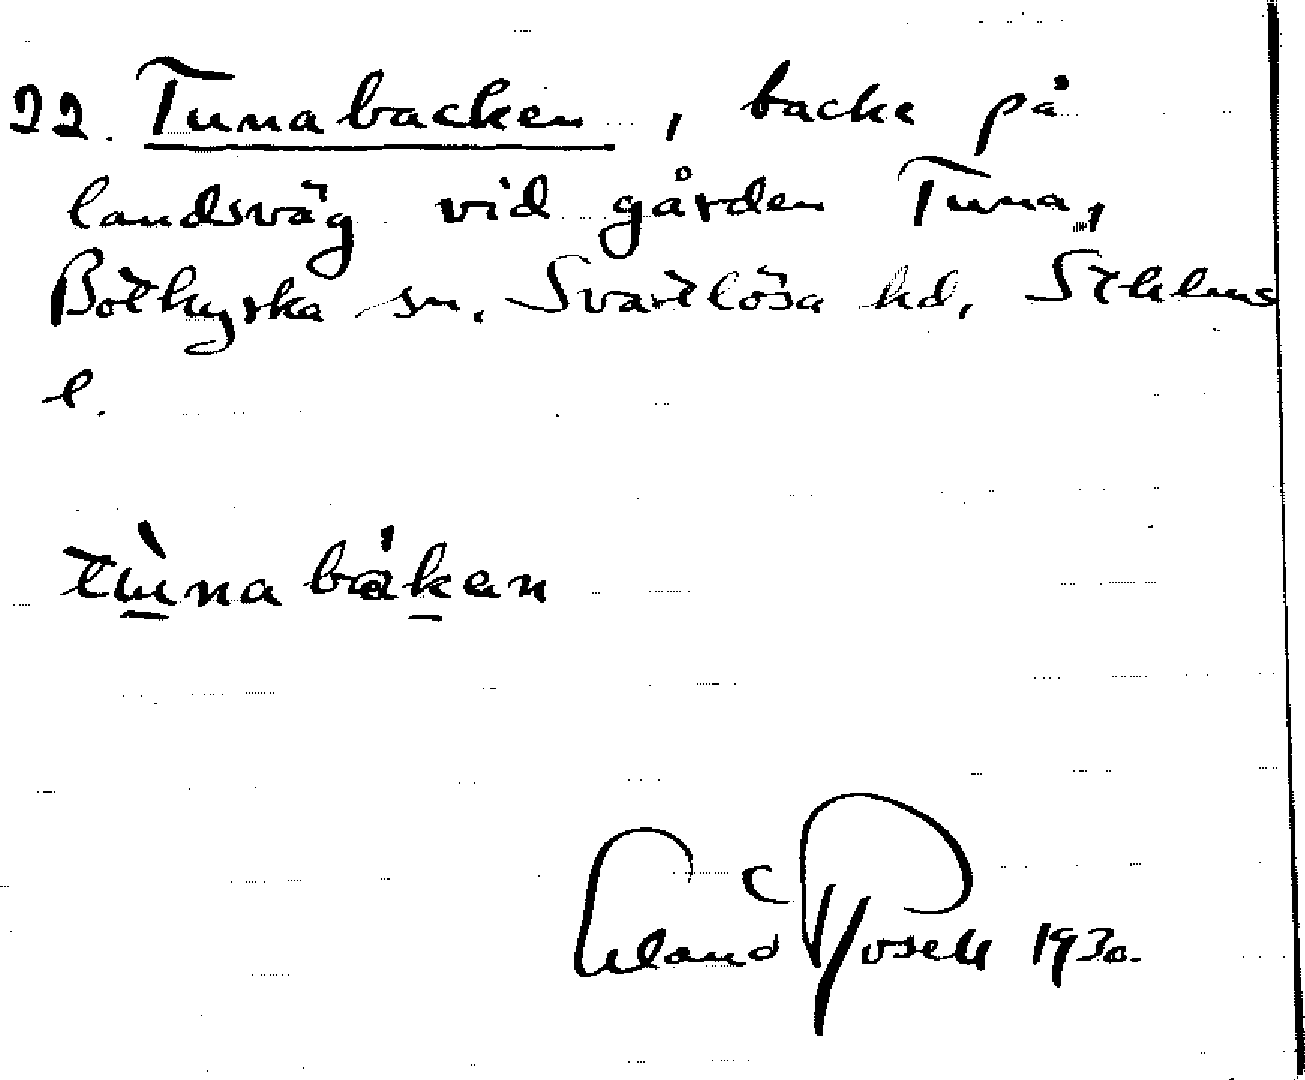 22. Tunabacken, backe på
landsväg vid gården Tuna,
Botkyrka sn. Svartlösa hd, Sthlms
l.
tùna bákan
Erland Rosell 1930.